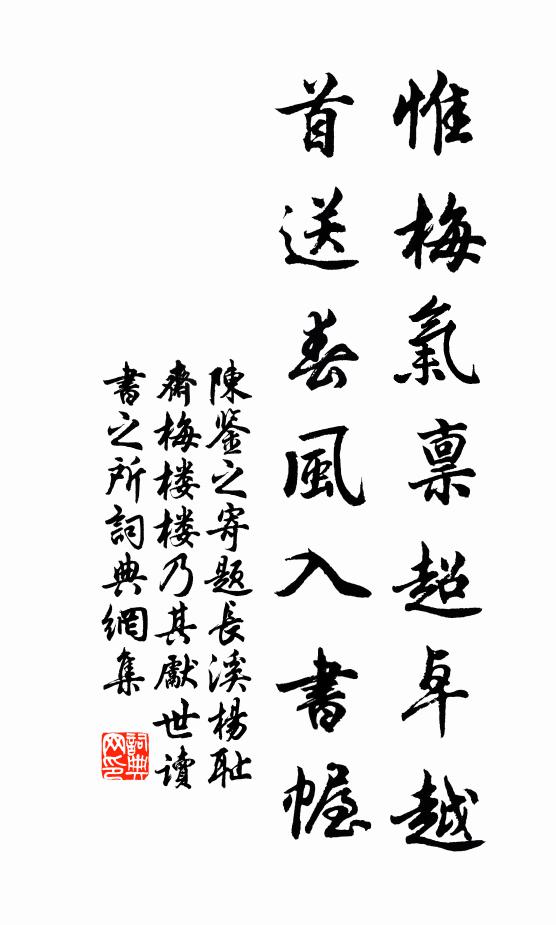 惟梅氣禀超卓越
首送春風入書幄
陳鉴之寄題長溪楊耻
齋梅楼楼乃其獻世读
書之所詞典網集
詞典網印